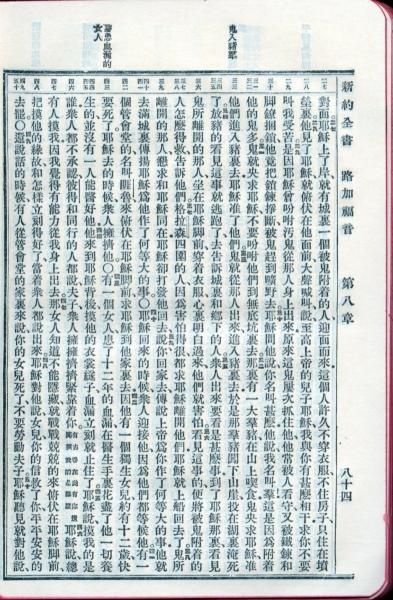 新約全書 路加福音 第八章 八十四
鬼入豬羣
治患血漏的
女人
對面耶穌上了岸就有城裏一個被鬼附着的人迎面而來這個人許久不穿衣服不住房子只住在墳
塋裏他見了耶穌就俯伏在他面前大聲喊叫說至高上帝的兒子耶穌我與你有甚麼相干求你不要
叫我受苦是因耶穌曾吩咐汚鬼從那人身上出來原來這鬼屢次抓住他他常被人看守又被鐵鍊和
脚鐐捆鎖他竟把鎖鍊掙斷被鬼趕到曠野去耶穌問他說你名叫甚麼他說我名叫羣這是因爲附着
他的鬼多鬼就央求耶穌不要吩咐他們到無底坑裏去那裏有一大羣豬在山上喫食鬼央求耶穌准
他們進入豬裏去耶穌准了他們鬼就從那人出來進入豬裏去於是那羣豬闖下山崖投在湖裏淹死
了放豬的看見這事就逃跑了去告訴城裏和鄉下的人衆人出來要看是甚麼事到了耶穌那裏看見
鬼所離開的那人坐在耶穌脚前穿着衣服心裏明白過來他們就害怕看見這事的便將被鬼附着的
人怎麼得救告訴他們格拉森四圍的人因爲害怕得很都求耶穌離開他們耶穌就上船回去了鬼所
離開的那人懇求和耶穌同在耶穌卻打發他回去說你回家去傳說上帝爲你作了何等大的事他就
去滿城裏傳揚耶穌爲他作了何等大的事〇耶穌回來的時候衆人迎接他因爲他們都等候他有一
個管會堂的名叫睚魯來俯伏在耶穌脚前求耶穌到他家裏去因他有一個獨生女兒約有十二歲快
要死了耶穌去的時候衆人擁擠他〇有一個女人患了十二年的血漏在醫生手裏花盡了他一切養
生的並沒有一人能醫好他他來到耶穌背後摸他的衣裳繸子血漏立刻就止住了耶穌說摸我的是
誰衆人都不承認彼得和同行的人都說夫子衆人擁擁擠擠緊靠着你有古卷在此有你還問摸我的是誰麼耶穌說總
有人摸我因我覺得有能力從我身上出去那女人知道不能隱藏就戰戰兢兢的來俯伏在耶穌脚前
把摸他的緣故和怎樣立刻得好了當着衆人都說出來耶穌對他說女兒你的信救了你平平安安的
去罷〇還說話的時候有人從管會堂的家裏來說你的女兒死了不要勞動夫子耶穌聽見就對他說